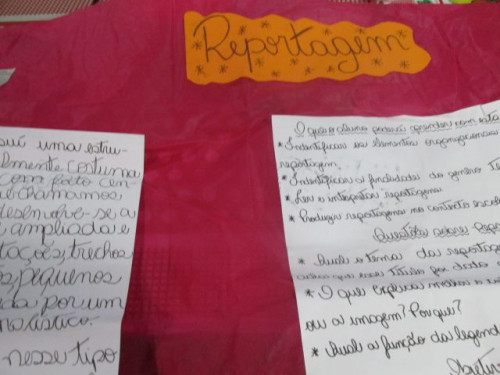 Reportagem
sui uma estru-
lmente costuma
com fato cen-
e chamamos
desenvolve-se a
ampliada e
tações, trechos
s, pequenos
da por um
nalístico.
nesse tipo
O que o aluno poderá aprender com esta
* Identificar os elementos organizacionais
reportagem
* Identificar a finalidade do gênero
* Ler e interpretar reportagens
* Produzir reportagens no contexto escola
Questões sobre
* Qual o tema da reportag
que esse título foi dado
* O que explica melhor a
ou a imagem? Por que?
* Qual a função da legend